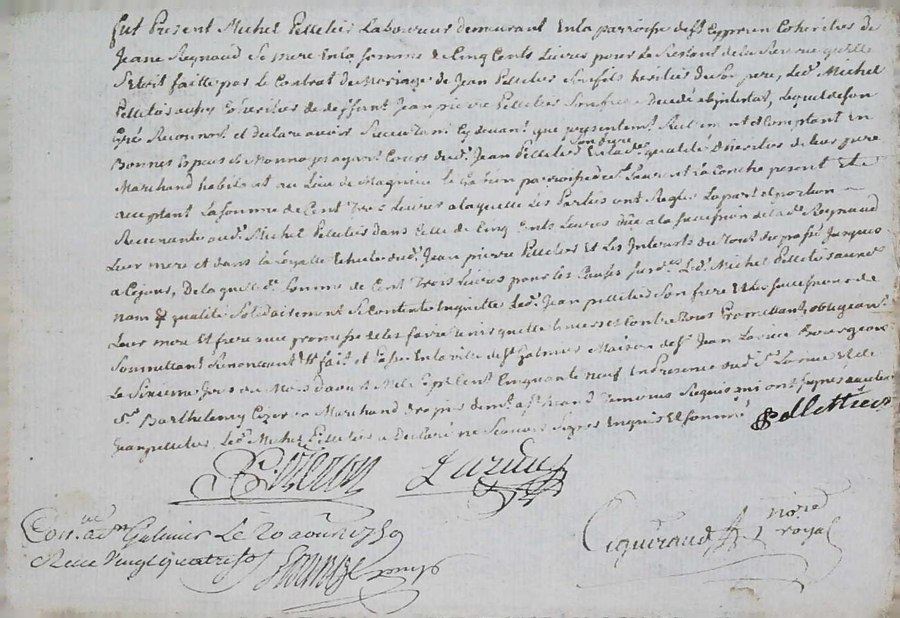 fut Present Michel Pelletier Laboureur demeurant En la parroisse de st Cyprien Coheritier de
Jeane Reynaud Sa mere En la somme de Cinq Cents Livres pour le Restant de la Reserve qu'elle
S'etoit faitte par le Contrat de Mariage de Jean Pelletier Son fils heritier de Son pere, led. Michel
Pelletier aussy Coheritier de deffunt Jean pierre Pelletier Son frere decedé abintestat, lequel de Son
Gré Reconnoit et declare avoir Receu tant Cydevant que presentement Reellement et Comptant En
Bonnes Especes de Monnoye ayant Cours dud. Jean Pelletier Son frere En lad. qualité d'heritier de leur pere
Marchand habitant au Lieu de parroisse de st Laurent la Conche present Et
acceptant La Somme de Cent Trois Livres a laquelle Les Parties ont Reglés La part et portion
Revenante aud. Michel Pelletier dans Celle de Cinq Cents Livres düe a la Succession de lad. Reynaud
Leur mere et dans la légitime Echüe dud. Jean pierre Pelletier Et Les Interets du tout du passé Jusques
a Cejour, De laquelle d. Somme de Cent Trois Livres pour les Causes Surd. Led. Michel Pelletier aux d.
nom & qualité Solidairement Se Contente En quitte led. Jean pelletier Son frere Et les Successions de
Leur mere Et frere avec promesse de les faire tenir quitte Envers et Contre tous Promettant, obligeant
Soumettant Renonçant &c fait et Passé En la ville de st Galmier Maison de sr Jean Bourgeois
Le Sixieme Jour du Mois d'aoust Mil Sept Cent Cinquante neuf En presence dud. Sr et de
Sr Barthelemy Marchand Temoins Requis qui ont Signés avec led.
Jean pelletier, led. Michel Pelletier a Declaré ne Scavoir Signer Enquis Et Sommé
Pelletier
Con.lé a st Galmier Le 20 aoust 1759
Recu vingt quatre sols
Cigueraud nore
royal